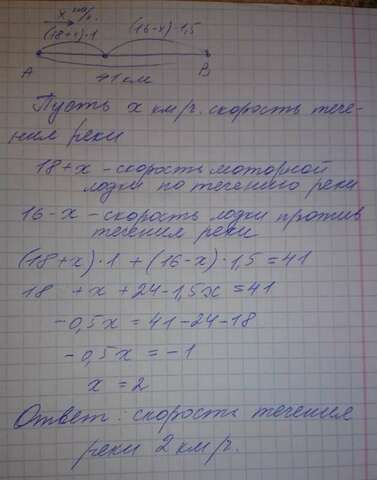 x км/ч.
(18+x)·1 (16-x)·1,5
A B
41 км
Пусть x км/ч. скорость тече-
ния реки
18+x - скорость моторной
лодки по течению реки
16-x - скорость лодки против
течения реки
(18+x)·1 + (16-x)·1,5 = 41
18 +x + 24-1,5x = 41
-0,5x = 41-24-18
-0,5x = -1
x = 2
Ответ: скорость течения
реки 2 км/ч.